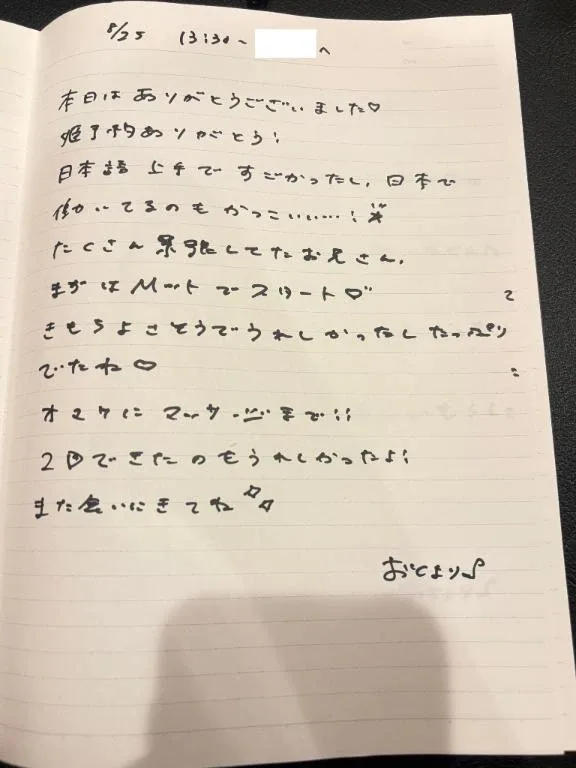 8/25 13:30〜 へ
本日はありがとうございました♡
姫予約ありがとう!
日本語上手ですごかったし、日本で
働いてるのもかっこいい…!
たくさん緊張してたお兄さん、
まずはMットでスタート♡
きもちよさそうでうれしかったしたっぷり
でたね♡
オマケにマッサージまで!!
2回できたのもうれしかったよ!
また会いにきてね
おとより♪